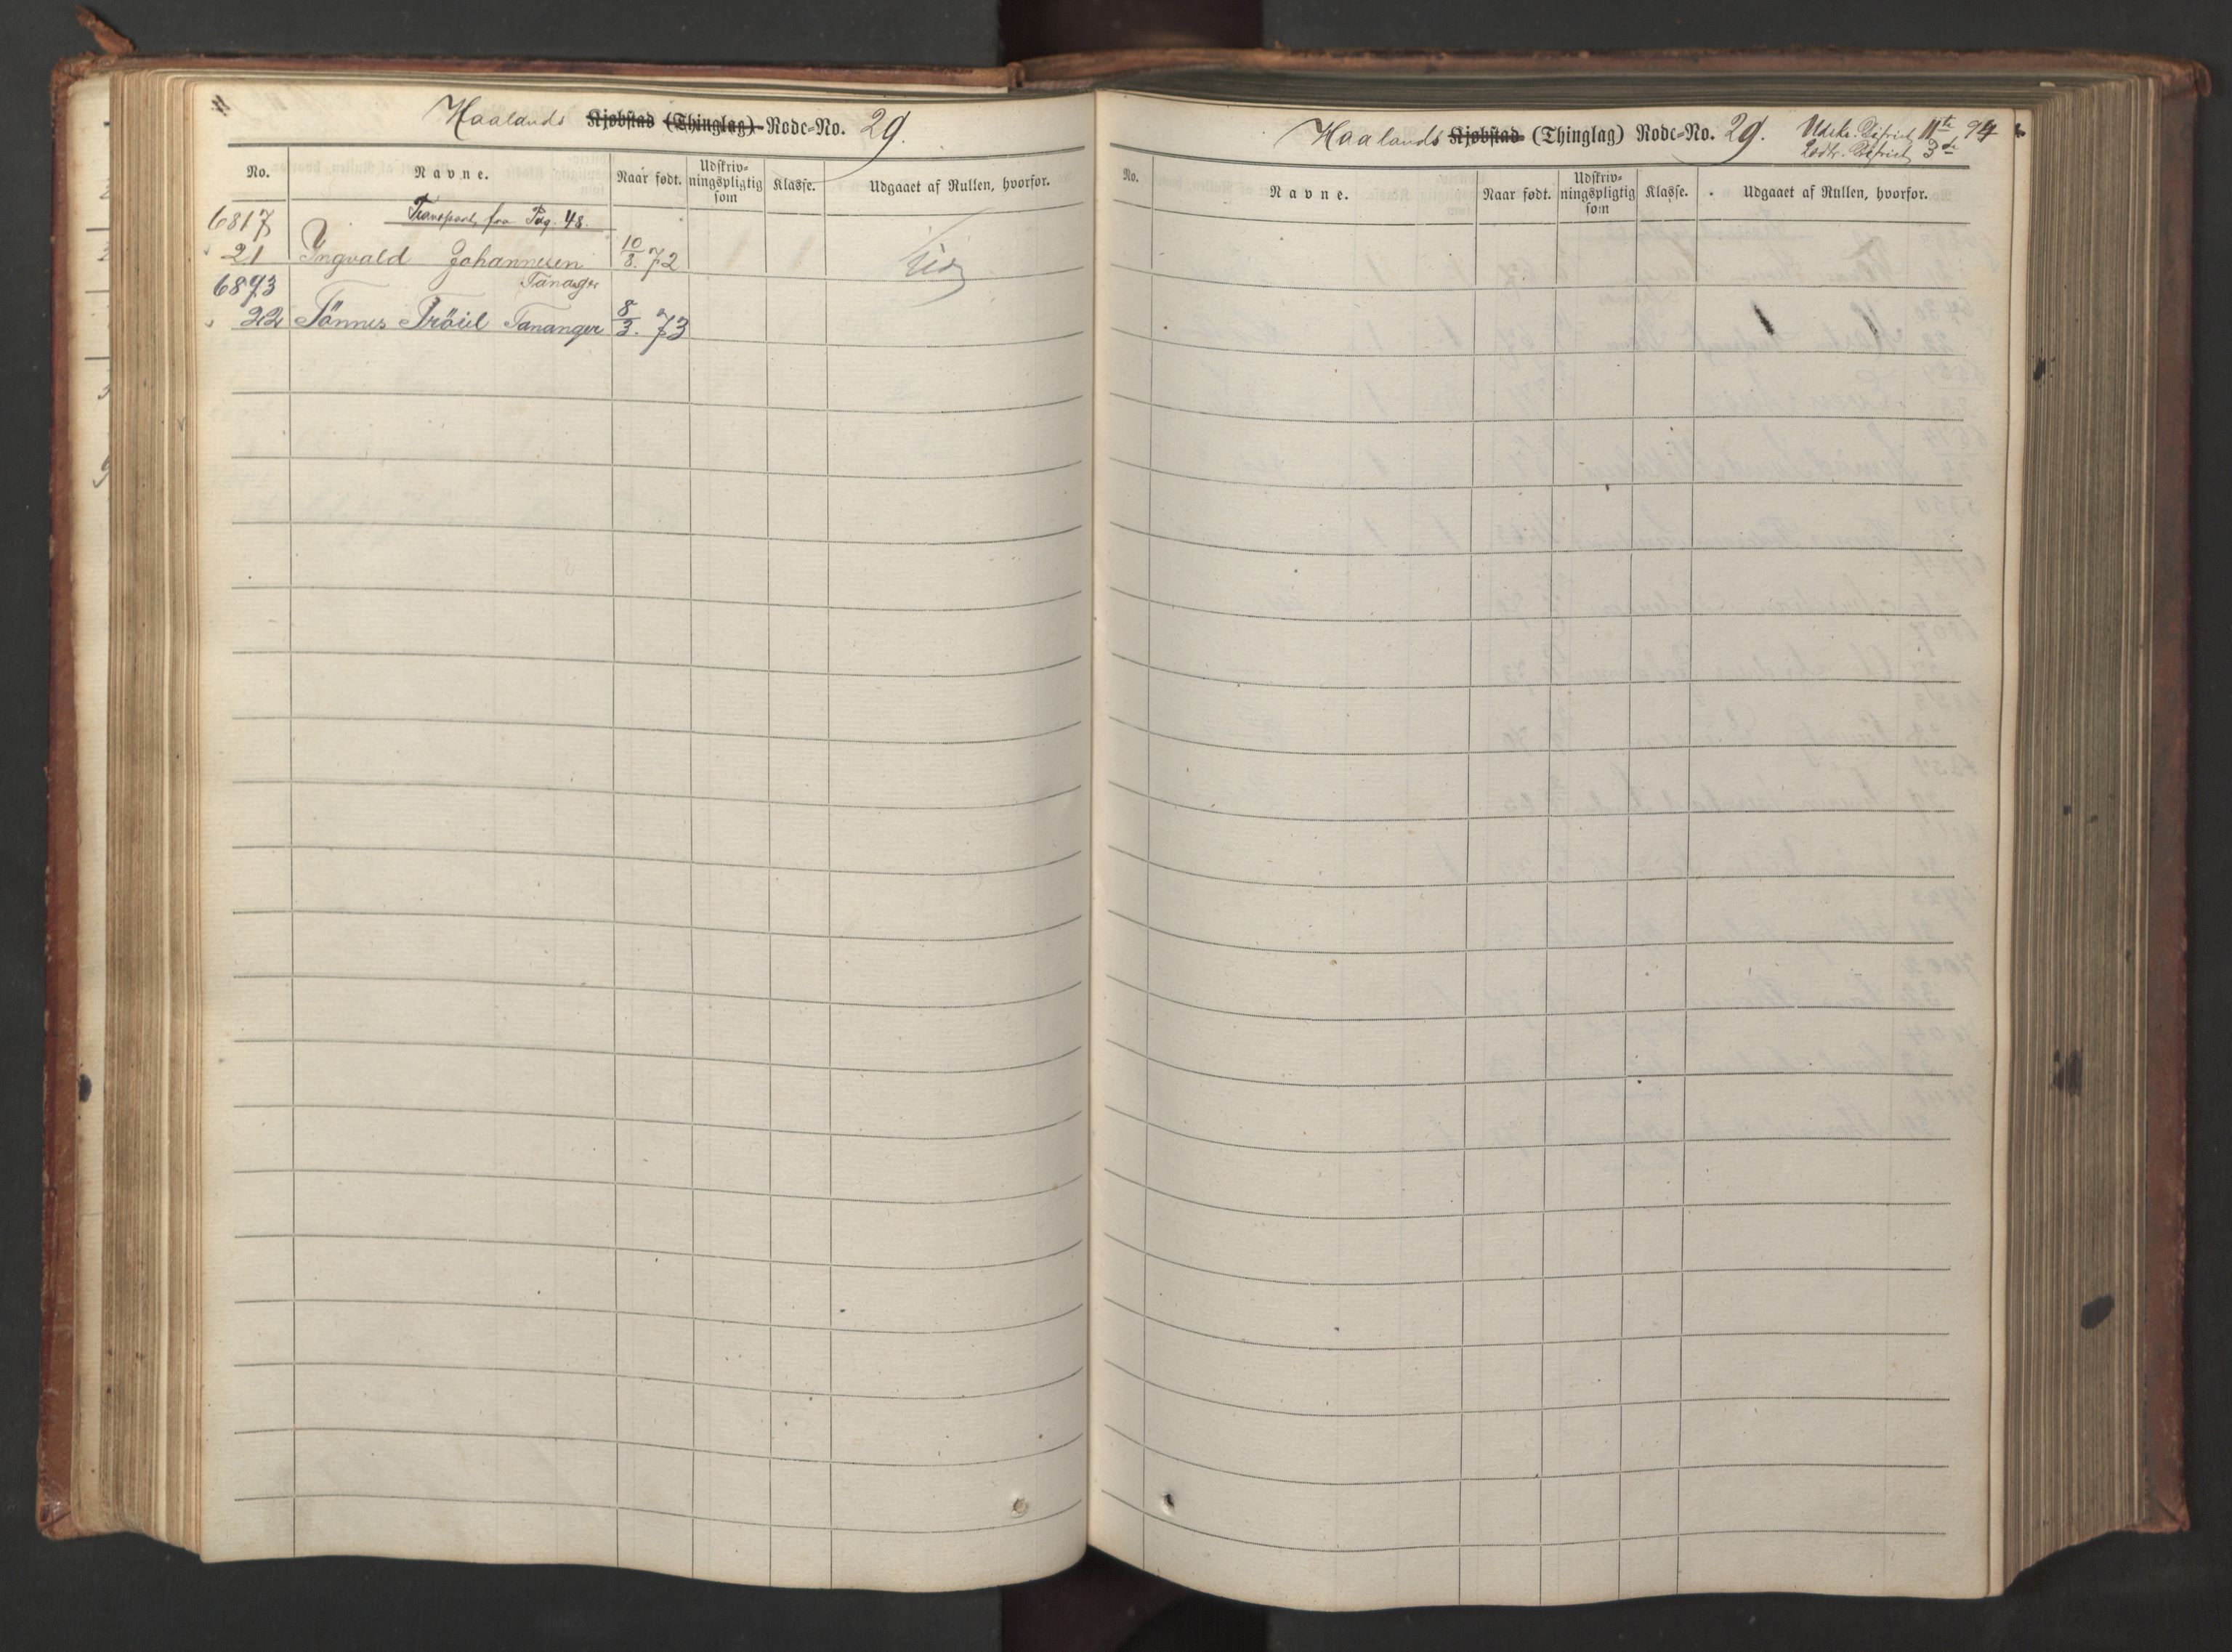 Haalands Kjøbstad (Thinglag) Rode-No. 29.
No.
Navne.
Naar født.
Udskriv-
ningspligtig
som
Klasse.
Udgaaet af Rullen, hvorfor.
6817
Transport fra Pag. 48.
21 Ingvald Johannesen 10/8. 72
Tananger
6893
22 Tönnes Tananger 8/3. 73
Haalands Kjøbstad (Thinglag) Rode-No. 29. Udskr. Distrikt 11te 94
Lodts. Distrikt 3de
No.
Navne.
Naar født.
Udskriv-
ningspligtig
som
Klasse.
Udgaaet af Rullen, hvorfor.